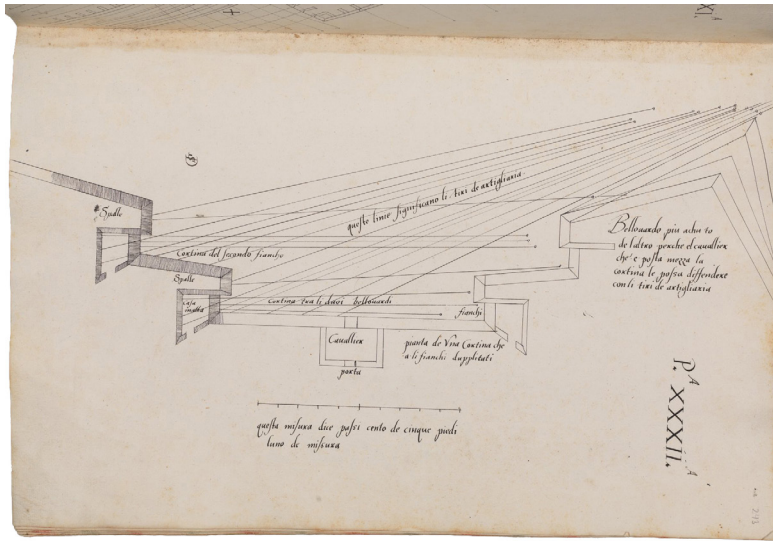 XI.
queste linie significano li tiri de artigliaria
Spalle
Cortina del secondo fiancho
Spalle
casa
matta
Cortina tra li duoi bellouardi
fianchi
Bellouardo piu achuto
de laltro perche el cauallier
che è posta mezza la
cortina le possa diffendere
con li tiri de artigliaria
Cauallier
porta
pianta de Vna Cortina che
a li fianchi dupplicati
questa misura dice passi cento de cinque piedi
luno de misura
P.A XXXII.A